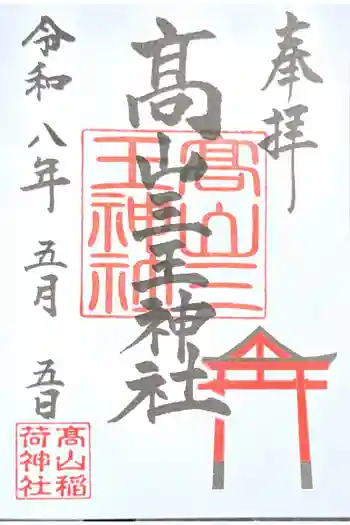 奉拝
髙山三王神社
令和八年 五月 五日
髙山三
王神社
髙山稲
荷神社